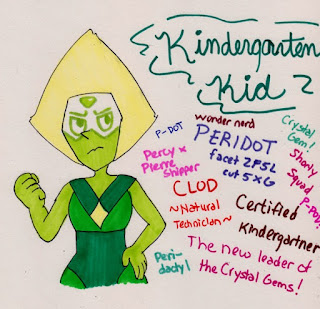 Kindergarten
Kid
P-DOT
wonder nerd
PERIDOT
facet 2F5L
cut 5XG
Crystal
Gem!
Shorty
Squad
P-Pop!
Percy x
Pierre
Shipper
CLOD
~Natural
Technician~
Certified
Kindergartner
Peri-
dactyl
The new leader of
the Crystal Gems!